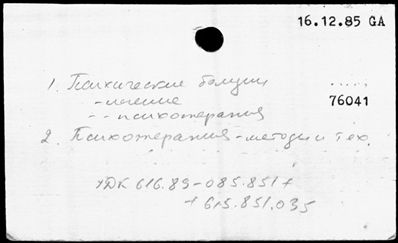 16.12.85 GA
1. Психические болезни
- лечение
76041
- - психотерапия
2. Психотерапия - методы и тех.
УДК 616.89-085.851+
+615.851.035